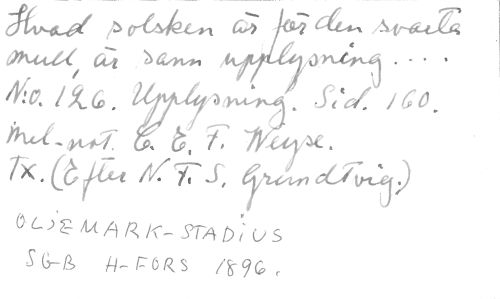 Hvad solsken är för den svarta
mull, är sann upplysning....
N:o. 126. Upplysning. Sid. 160.
Mel-not. C. E. F. Weyse.
Tx. (Efter N. F. S. Grundtvig.)
OLJEMARK-STADIUS
SGB H-FORS 1896.